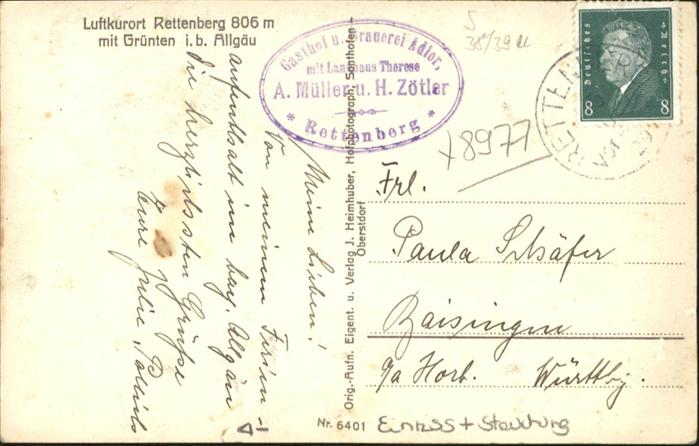 Luftkurort Rettenberg 806 m
mit Grünten i. b. Allgäu
Gasthof u. Brauerei Adler,
mit Landhaus Therese
A. Müller u. H. Zötler
* Rettenberg *
S
38/39
Deutsches Reich
8 8
RETTEN
x8977
Meine Lieben!
Von meinem Ferien-
aufenthalt im bayr. Allgäu
die herzlichsten Grüße
Eure Julie
Orig.-Aufn. Eigent. u. Verlag J. Heimhuber, Hofphotograph, Sonthofen-
Oberstdorf
Frl.
Paula Schäfer
Baisingen
o/a Horb. Württbg.
Nr. 6401
Einriss + Stauchung